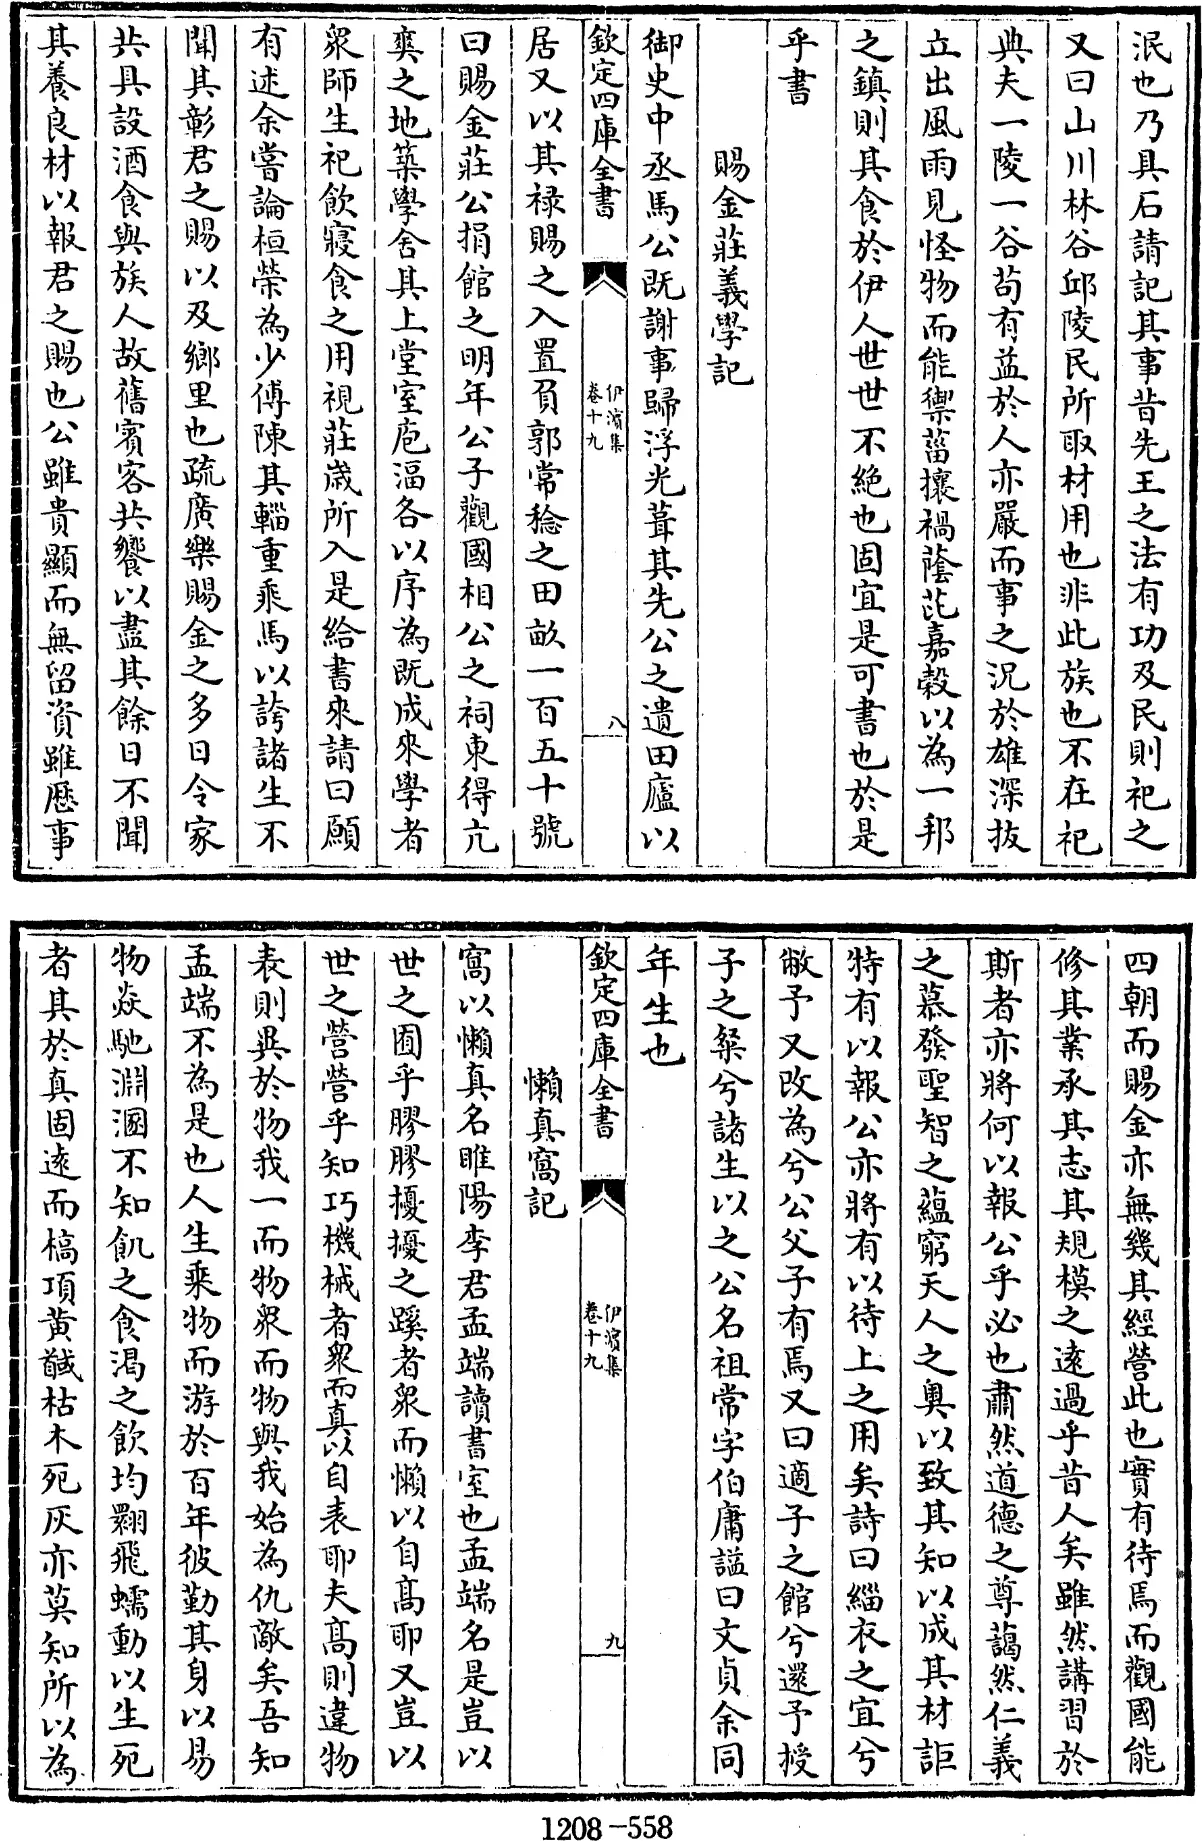 泯也乃具石請記其事昔先王之法有功及民則祀之
又曰山川林谷邱陵民所取材用也非此族也不在祀
典夫一陵一谷苟有益於人亦嚴而事之況於雄深拔
立出風雨見怪物而能禦菑攘禍蔭芘嘉穀以為一邦
之鎮則其食於伊人世世不絶也固宜是可書也於是
乎書
賜金莊義學記
御史中丞馬公既謝事歸浮光葺其先公之遺田廬以
欽定四庫全書
伊濱集
卷十九
八
居又以其禄賜之入置負郭常稔之田畝一百五十號
曰賜金莊公捐館之明年公子觀國相公之祠東得亢
爽之地築學舍其上堂室庖湢各以序為既成來學者
衆師生祀飲寢食之用視莊歲所入是給書來請曰願
有述余嘗論桓榮為少傅陳其輜重乘馬以誇諸生不
聞其彰君之賜以及鄉里也疏廣樂賜金之多日令家
共具設酒食與族人故舊賓客共饗以盡其餘日不聞
其養良材以報君之賜也公雖貴顯而無留資雖歴事
四朝而賜金亦無幾其經營此也實有待焉而觀國能
修其業承其志其規模之遠過乎昔人矣雖然講習於
斯者亦將何以報公乎必也肅然道德之尊藹然仁義
之慕發聖智之蘊窮天人之奥以致其知以成其材詎
特有以報公亦將有以待上之用矣詩曰緇衣之宜兮
敝予又改為兮公父子有焉又曰適子之館兮還予授
子之粲兮諸生以之公名祖常字伯庸諡曰文貞余同
年生也
欽定四庫全書
伊濱集
卷十九
九
懶真窩記
窩以懶真名睢陽李君孟端讀書室也孟端名是豈以
世之囿乎膠膠擾擾之蹊者衆而懶以自髙耶又豈以
世之營營乎知巧機械者衆而真以自表耶夫髙則違物
表則異於物我一而物衆而物與我始為仇敵矣吾知
孟端不為是也人生乘物而游於百年彼勤其身以易
物焱馳淵溷不知飢之食渴之飲均翾飛蠕動以生死
者其於真固逺而槁項黄馘枯木死灰亦莫知所以為
1208-558